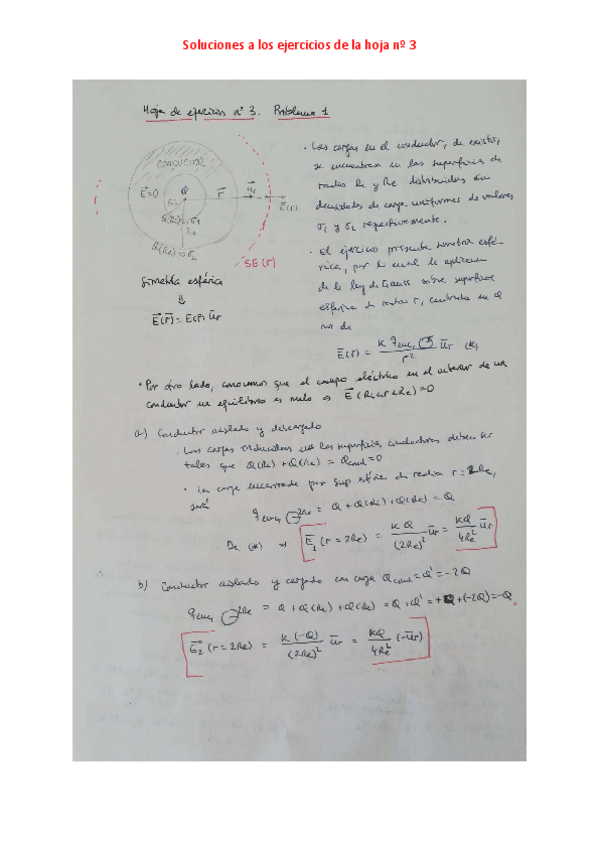 Soluciones a los ejercicios de la hoja nº 3
Hoja de ejercicios nº 3. Problema 1
CONDUCTOR
E=0 Q r ur E(r)
Ri
Q(Ri) σ1
Re
Q(Re) σ2
SE(r)
Simetría esférica
⇓
E(r) = E(r) ur
· Las cargas en el conductor, de existir,
se encuentran en las superficies de
radios Ri y Re distribuidas con
densidades de carga uniformes de valores
σ1 y σ2 respectivamente.
· El ejercicio presenta simetría esfé-
rica, por lo cual la aplicación
de la ley de Gauss sobre superficie
esférica de radio r, centrada en Q
nos da
E(r) = K qenc, / r² ur (*)
· Por otro lado, conocemos que el campo eléctrico en el interior de un
conductor en equilibrio es nulo ⇒ E (Ri<r<Re)=0
a) Conductor aislado y descargado
· Las cargas inducidas en las superficies conductoras deben ser
tales que Q(Ri) + Q(Re) = Qcond = 0
· La carga encerrada por sup. esférica de radio r = 2Re,
será
qenc, 2Re = Q + Q(Ri) + Q(Re) = Q
De (*) ⇒ E1 (r = 2Re) = KQ / (2Re)² ur = KQ / 4Re² ur
b) Conductor aislado y cargado con carga Qcond = Q' = -2Q
qenc, 2Re = Q + Q(Ri) + Q(Re) = Q + Q' = +Q + (-2Q) = -Q.
E2 (r = 2Re) = K(-Q) / (2Re)² ur = KQ / 4Re² (-ur)